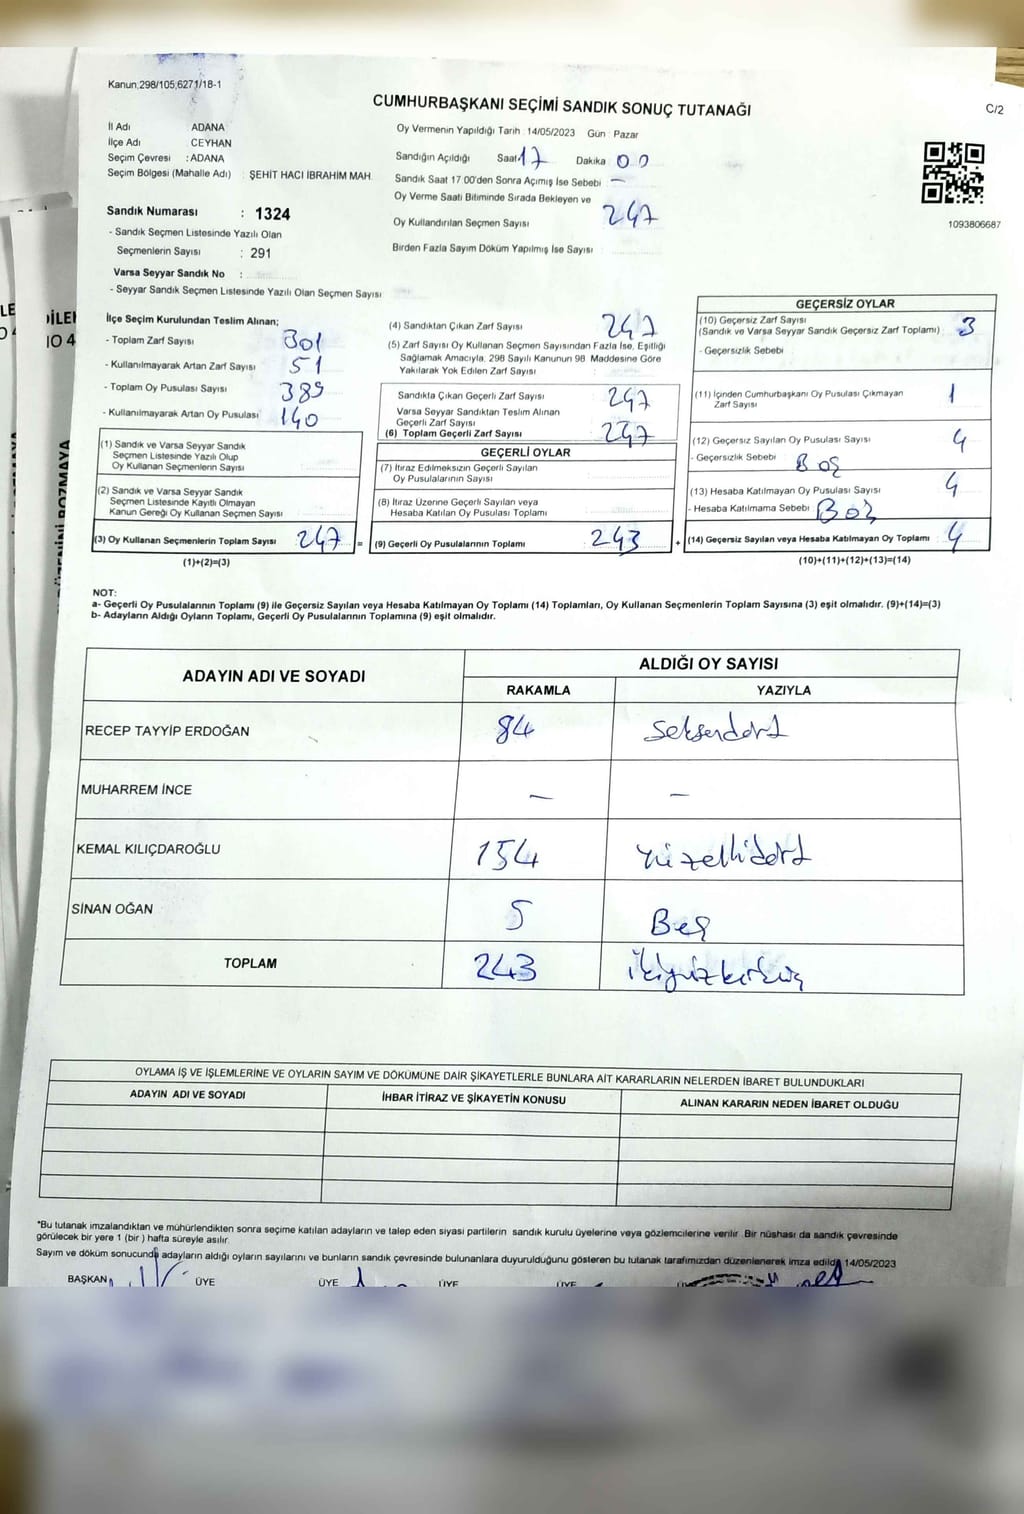 Kanun;298/105,6271/18-1
CUMHURBAŞKANI SEÇİMİ SANDIK SONUÇ TUTANAĞI
C/2
İl Adı : ADANA
İlçe Adı : CEYHAN
Seçim Çevresi : ADANA
Seçim Bölgesi (Mahalle Adı) : ŞEHİT HACI İBRAHİM MAH.
Sandık Numarası : 1324
- Sandık Seçmen Listesinde Yazılı Olan
Seçmenlerin Sayısı : 291
Varsa Seyyar Sandık No :
- Seyyar Sandık Seçmen Listesinde Yazılı Olan Seçmen Sayısı
Oy Vermenin Yapıldığı Tarih : 14/05/2023 Gün : Pazar
Sandığın Açıldığı Saat 17 Dakika 00
Sandık Saat 17 00'den Sonra Açımış İse Sebebi : —
Oy Verme Saati Bitiminde Sırada Bekleyen ve
Oy Kullandırılan Seçmen Sayısı 247
Birden Fazla Sayım Döküm Yapılmış İse Sayısı :
1093806687
İlçe Seçim Kurulundan Teslim Alınan;
- Toplam Zarf Sayısı 301
- Kullanılmayarak Artan Zarf Sayısı : 51
- Toplam Oy Pusulası Sayısı 389
- Kullanılmayarak Artan Oy Pusulası 140
(1) Sandık ve Varsa Seyyar Sandık
Seçmen Listesinde Yazılı Olup
Oy Kullanan Seçmenlerin Sayısı
(2) Sandık ve Varsa Seyyar Sandık
Seçmen Listesinde Kayıtlı Olmayan
Kanun Gereği Oy Kullanan Seçmen Sayısı :
(3) Oy Kullanan Seçmenlerin Toplam Sayısı 247 =
(1)+(2)=(3)
(4) Sandıktan Çıkan Zarf Sayısı 247
(5) Zarf Sayısı Oy Kullanan Seçmen Sayısından Fazla İse, Eşitliği
Sağlamak Amacıyla, 298 Sayılı Kanunun 98 Maddesine Göre
Yakılarak Yok Edilen Zarf Sayısı :
Sandıkta Çıkan Geçerli Zarf Sayısı : 247
Varsa Seyyar Sandıktan Teslim Alınan
Geçerli Zarf Sayısı :
(6) Toplam Geçerli Zarf Sayısı 247
GEÇERLİ OYLAR
(7) İtiraz Edilmeksizin Geçerli Sayılan
Oy Pusulalarının Sayısı
(8) İtiraz Üzerine Geçerli Sayılan veya
Hesaba Katılan Oy Pusulası Toplamı
(9) Geçerli Oy Pusulalarının Toplamı 243 +
GEÇERSİZ OYLAR
(10) Geçersiz Zarf Sayısı
(Sandık ve Varsa Seyyar Sandık Geçersiz Zarf Toplamı) : 3
- Geçersizlik Sebebi :
(11) İçinden Cumhurbaşkanı Oy Pusulası Çıkmayan
Zarf Sayısı 1
(12) Geçersiz Sayılan Oy Pusulası Sayısı 4
- Geçersizlik Sebebi Boş
(13) Hesaba Katılmayan Oy Pusulası Sayısı 4
- Hesaba Katılmama Sebebi Boş
(14) Geçersiz Sayılan veya Hesaba Katılmayan Oy Toplamı 4
(10)+(11)+(12)+(13)=(14)
NOT:
a- Geçerli Oy Pusulalarının Toplamı (9) ile Geçersiz Sayılan veya Hesaba Katılmayan Oy Toplamı (14) Toplamları, Oy Kullanan Seçmenlerin Toplam Sayısına (3) eşit olmalıdır. (9)+(14)=(3)
b- Adayların Aldığı Oyların Toplamı, Geçerli Oy Pusulalarının Toplamına (9) eşit olmalıdır.
ADAYIN ADI VE SOYADI ALDIĞI OY SAYISI
RAKAMLA YAZIYLA
RECEP TAYYİP ERDOĞAN 84 seksendört
MUHARREM İNCE — —
KEMAL KILIÇDAROĞLU 154 Yüzellidört
SİNAN OĞAN 5 Beş
TOPLAM 243 ikiyüzkırküç
OYLAMA İŞ VE İŞLEMLERİNE VE OYLARIN SAYIM VE DÖKÜMÜNE DAİR ŞİKAYETLERLE BUNLARA AİT KARARLARIN NELERDEN İBARET BULUNDUKLARI
ADAYIN ADI VE SOYADI İHBAR İTİRAZ VE ŞİKAYETİN KONUSU ALINAN KARARIN NEDEN İBARET OLDUĞU
*Bu tutanak imzalandıktan ve mühürlendikten sonra seçime katılan adayların ve talep eden siyasi partilerin sandık kurulu üyelerine veya gözlemcilerine verilir. Bir nüshası da sandık çevresinde
görülecek bir yere 1 (bir ) hafta süreyle asılır.
Sayım ve döküm sonucunda adayların aldığı oyların sayılarını ve bunların sandık çevresinde bulunanlara duyurulduğunu gösteren bu tutanak tarafımızdan düzenlenerek imza edildi 14/05/2023
BAŞKAN ÜYE ÜYE ÜYE ÜYE